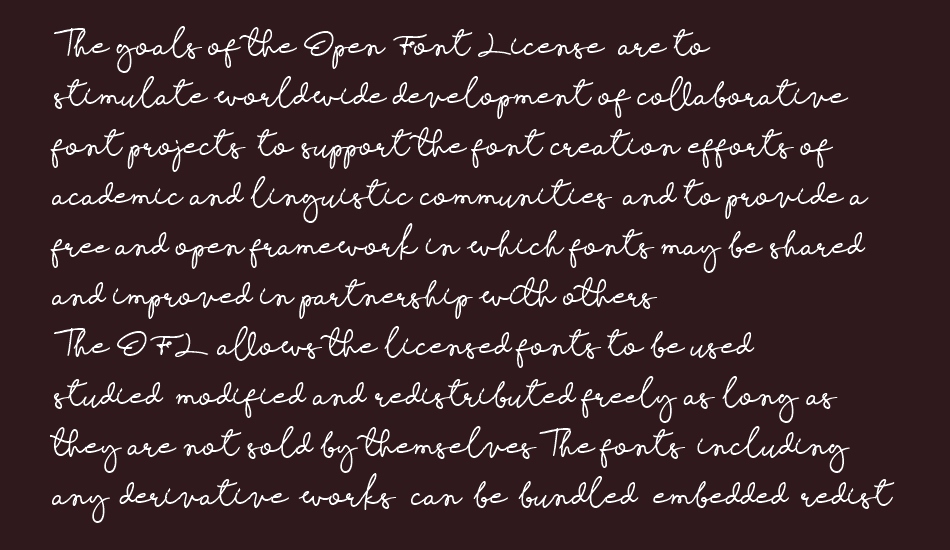 The goals of the Open Font License are to
stimulate worldwide development of collaborative
font projects to support the font creation efforts of
academic and linguistic communities and to provide a
free and open framework in which fonts may be shared
and improved in partnership with others
The OFL allows the licensed fonts to be used
studied modified and redistributed freely as long as
they are not sold by themselves The fonts including
any derivative works can be bundled embedded redist